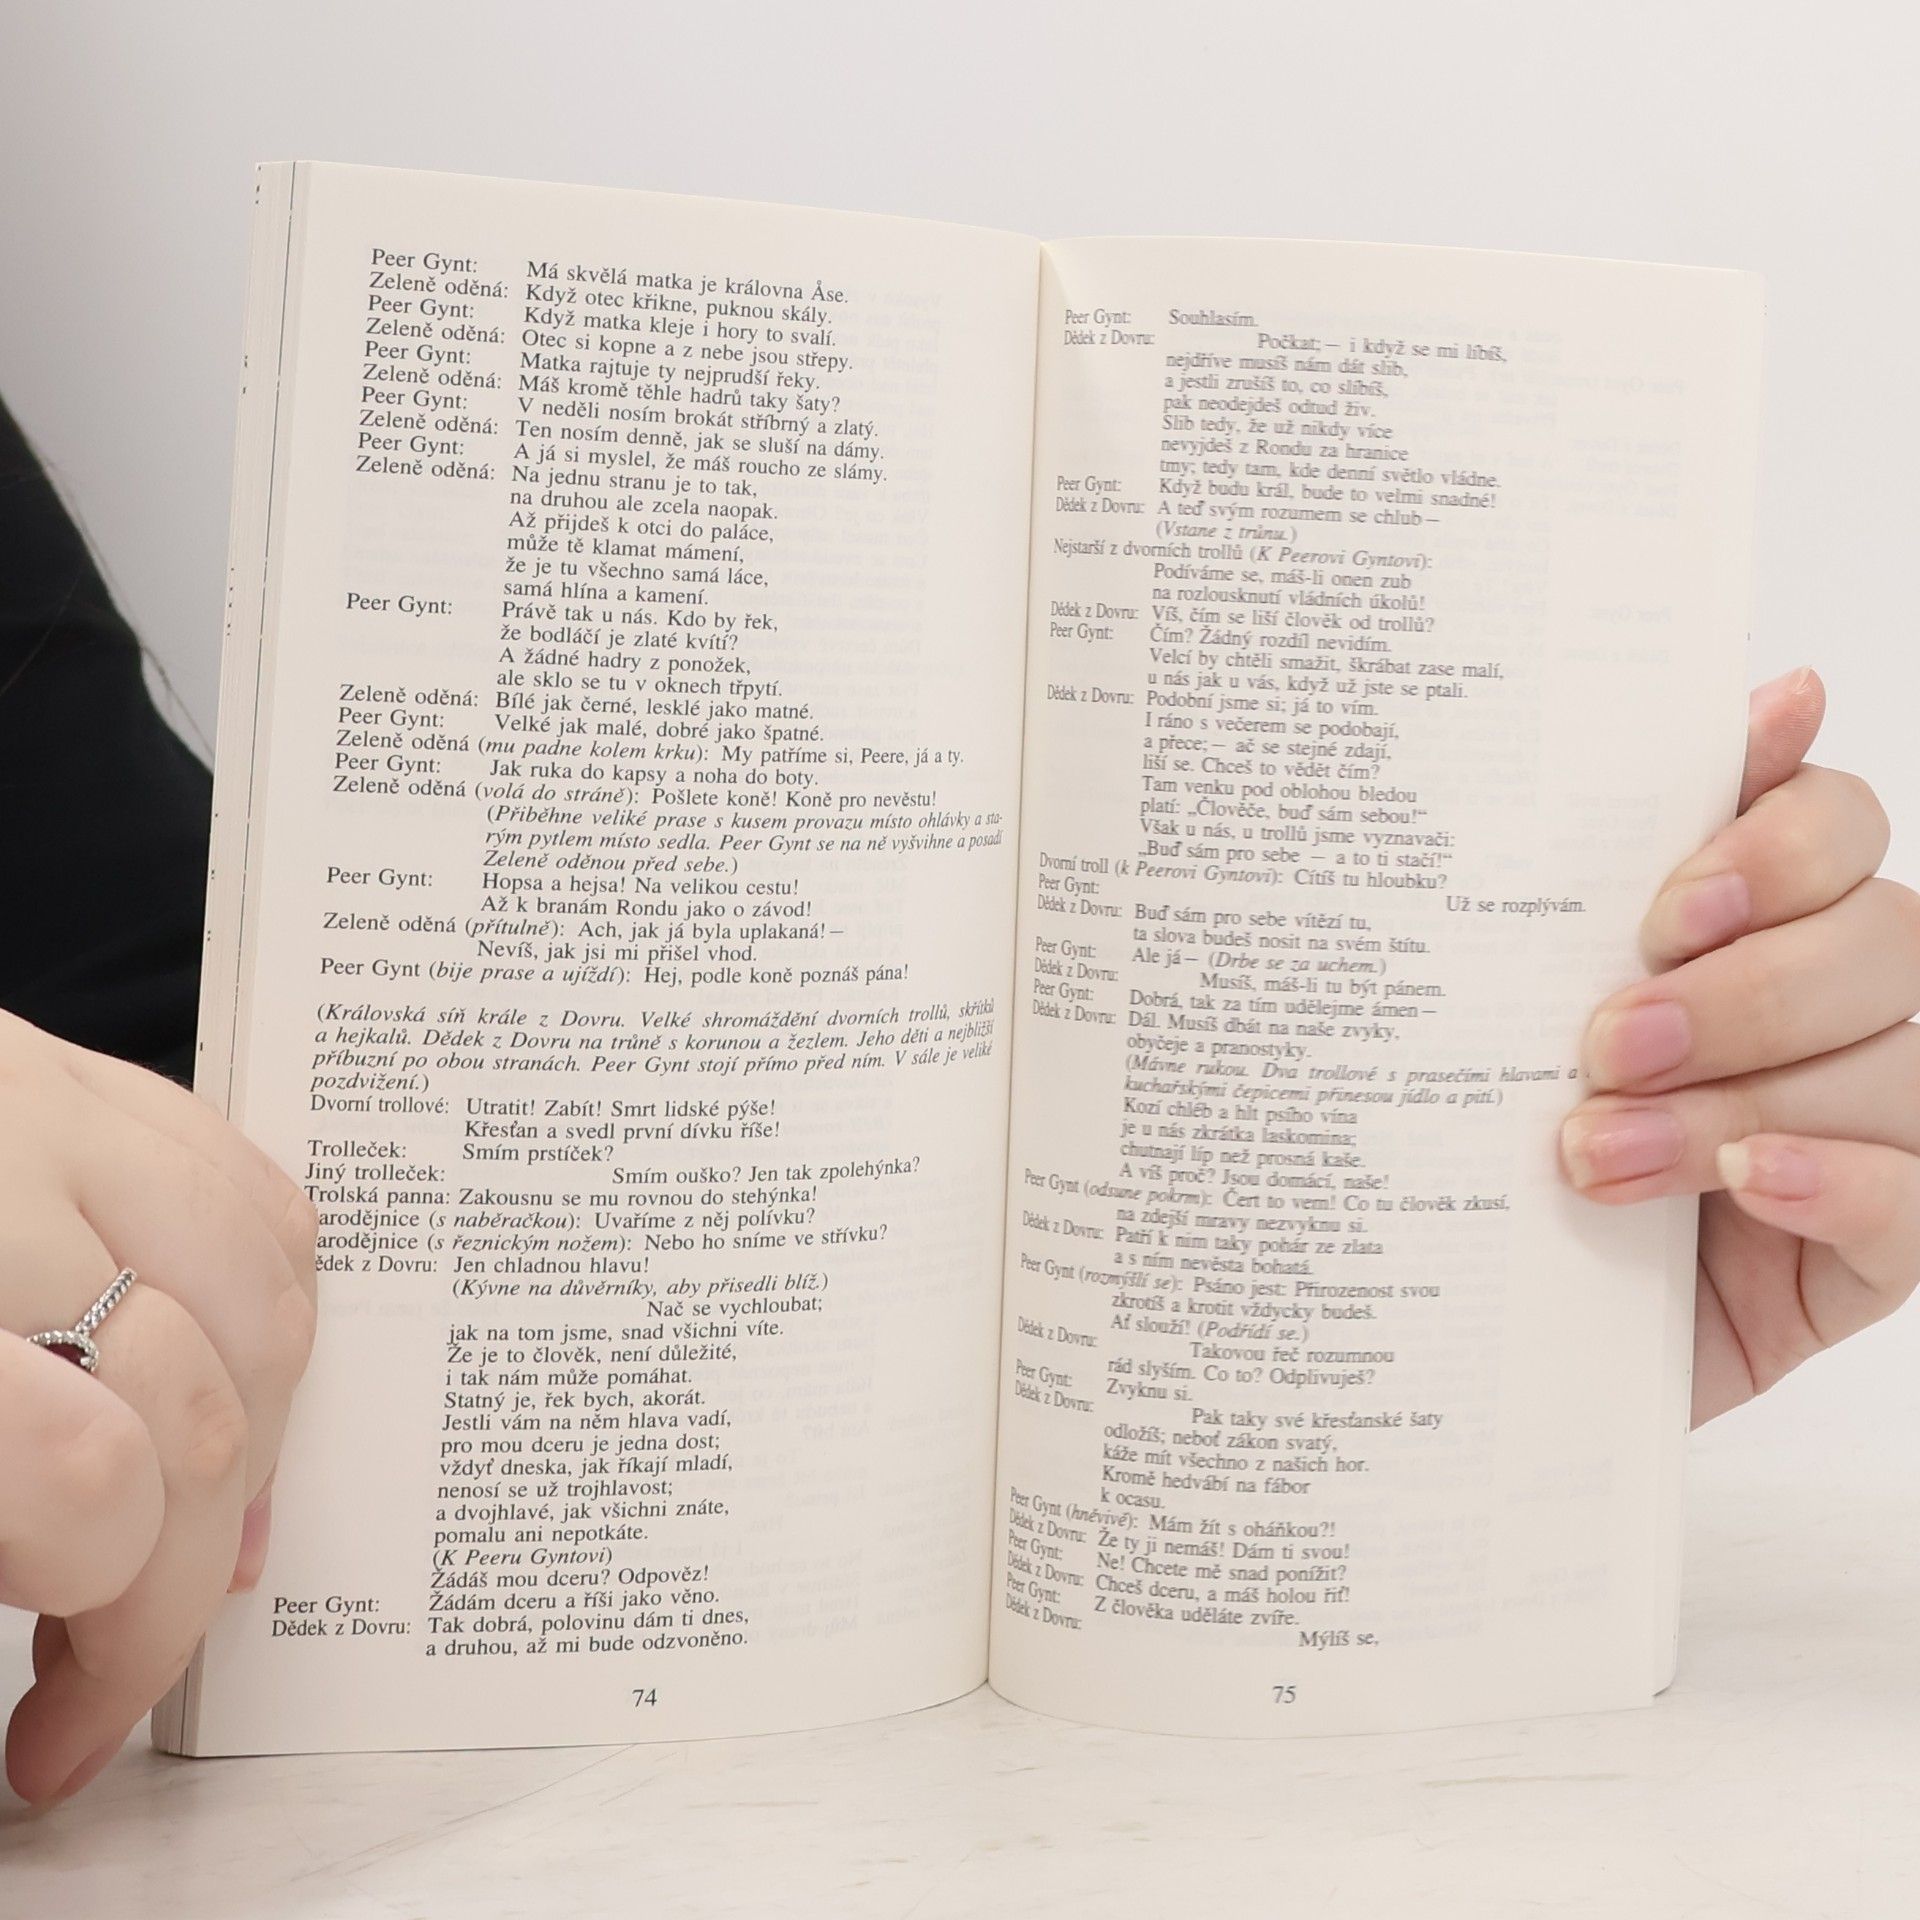 Peer Gynt: Má skvělá matka je královna Åse.
Zeleně oděná: Když otec křikne, puknou skály.
Peer Gynt: Když matka kleje i hory to svalí.
Zeleně oděná: Otec si kopne a z nebe jsou střepy.
Peer Gynt: Matka rajtuje ty nejprudší řeky.
Zeleně oděná: Máš kromě těhle hadrů taky šaty?
Peer Gynt: V neděli nosím brokát stříbrný a zlatý.
Zeleně oděná: Ten nosím denně, jak se sluší na dámy.
Peer Gynt: A já si myslel, že máš roucho ze slámy.
Zeleně oděná: Na jednu stranu je to tak,
na druhou ale zcela naopak.
Až přijdeš k otci do paláce,
může tě klamat mámení,
že je tu všechno samá láce,
samá hlína a kamení.
Peer Gynt: Právě tak u nás. Kdo by řek,
že bodláčí je zlaté kvítí?
A žádné hadry z ponožek,
ale sklo se tu v oknech třpytí.
Zeleně oděná: Bílé jak černé, lesklé jako matné.
Peer Gynt: Velké jak malé, dobré jako špatné.
Zeleně oděná (mu padne kolem krku): My patříme si, Peere, já a ty.
Peer Gynt: Jak ruka do kapsy a noha do boty.
Zeleně oděná (volá do stráně): Pošlete koně! Koně pro nevěstu!
(Přiběhne veliké prase s kusem provazu místo ohlávky a sta-
rým pytlem místo sedla. Peer Gynt se na ně vyšvihne a posadí
Zeleně oděnou před sebe.)
Peer Gynt: Hopsa a hejsa! Na velikou cestu!
Až k branám Rondu jako o závod!
Zeleně oděná (přítulně): Ach, jak já byla uplakaná! –
Nevíš, jak jsi mi přišel vhod.
Peer Gynt (bije prase a ujíždí): Hej, podle koně poznáš pána!
(Královská síň krále z Dovru. Velké shromáždění dvorních trollů, skřítků
a hejkalů. Dědek z Dovru na trůně s korunou a žezlem. Jeho děti a nejbližší
příbuzní po obou stranách. Peer Gynt stojí přímo před ním. V sále je veliké
pozdvižení.)
Dvorní trollové: Utratit! Zabít! Smrt lidské pýše!
Křesťan a svedl první dívku říše!
Trolleček: Smím prstíček?
Jiný trolleček: Smím ouško? Jen tak zpolehýnka?
Trolská panna: Zakousnu se mu rovnou do stehýnka!
arodějnice (s naběračkou): Uvaříme z něj polívku?
arodějnice (s řeznickým nožem): Nebo ho sníme ve střívku?
ědek z Dovru: Jen chladnou hlavu!
(Kývne na důvěrníky, aby přisedli blíž.)
Nač se vychloubat;
jak na tom jsme, snad všichni víte.
Že je to člověk, není důležité,
i tak nám může pomáhat.
Statný je, řek bych, akorát.
Jestli vám na něm hlava vadí,
pro mou dceru je jedna dost;
vždyť dneska, jak říkají mladí,
nenosí se už trojhlavost;
a dvojhlavé, jak všichni znáte,
pomalu ani nepotkáte.
(K Peeru Gyntovi)
Žádáš mou dceru? Odpověz!
Peer Gynt: Žádám dceru a říši jako věno.
Dědek z Dovru: Tak dobrá, polovinu dám ti dnes,
a druhou, až mi bude odzvoněno.
74
Peer Gynt: Souhlasím.
Dědek z Dovru: Počkat; – i když se mi líbíš,
nejdříve musíš nám dát slib,
a jestli zrušíš to, co slíbíš,
pak neodejdeš odtud živ.
Slib tedy, že už nikdy více
nevyjdeš z Rondu za hranice
tmy; tedy tam, kde denní světlo vládne.
Peer Gynt: Když budu král, bude to velmi snadné!
Dědek z Dovru: A teď svým rozumem se chlub –
(Vstane z trůnu.)
Nejstarší z dvorních trollů (K Peerovi Gyntovi):
Podíváme se, máš-li onen zub
na rozlousknutí vládních úkolů!
Dědek z Dovru: Víš, čím se liší člověk od trollů?
Peer Gynt: Čím? Žádný rozdíl nevidím.
Velcí by chtěli smažit, škrábat zase malí,
u nás jak u vás, když už jste se ptali.
Dědek z Dovru: Podobní jsme si; já to vím.
I ráno s večerem se podobají,
a přece; – ač se stejné zdají,
liší se. Chceš to vědět čím?
Tam venku pod oblohou bledou
platí: „Člověče, buď sám sebou!“
Však u nás, u trollů jsme vyznavači:
„Buď sám pro sebe – a to ti stačí!“
Dvorní troll (k Peerovi Gyntovi): Cítíš tu hloubku?
Peer Gynt: Už se rozplývám.
Dědek z Dovru: Buď sám pro sebe vítězí tu,
ta slova budeš nosit na svém štítu.
Peer Gynt: Ale já – (Drbe se za uchem.)
Dědek z Dovru: Musíš, máš-li tu být pánem.
Peer Gynt: Dobrá, tak za tím udělejme ámen –
Dědek z Dovru: Dál. Musíš dbát na naše zvyky,
obyčeje a pranostyky.
(Mávne rukou. Dva trollové s prasečími hlavami a
kuchařskými čepicemi přinesou jídlo a pití.)
Kozí chléb a hlt psího vína
je u nás zkrátka laskomina;
chutnají líp než prosná kaše.
A víš proč? Jsou domácí, naše!
Peer Gynt (odsune pokrm): Čert to vem! Co tu člověk zkusí,
na zdejší mravy nezvyknu si.
Dědek z Dovru: Patří k nim taky pohár ze zlata
a s ním nevěsta bohatá.
Peer Gynt (rozmýšlí se): Psáno jest: Přirozenost svou
zkrotíš a krotit vždycky budeš.
Ať slouží! (Podřídí se.)
Dědek z Dovru: Takovou řeč rozumnou
rád slyším. Co to? Odplivuješ?
Peer Gynt: Zvyknu si.
Dědek z Dovru: Pak taky své křesťanské šaty
odložíš; neboť zákon svatý,
káže mít všechno z našich hor.
Kromě hedvábí na fábor
k ocasu.
Peer Gynt (hněvivě): Mám žít s oháňkou?!
Dědek z Dovru: Že ty ji nemáš! Dám ti svou!
Peer Gynt: Ne! Chcete mě snad ponížit?
Dědek z Dovru: Chceš dceru, a máš holou řiť!
Peer Gynt: Z člověka uděláte zvíře.
Dědek z Dovru: Mýlíš se,
75